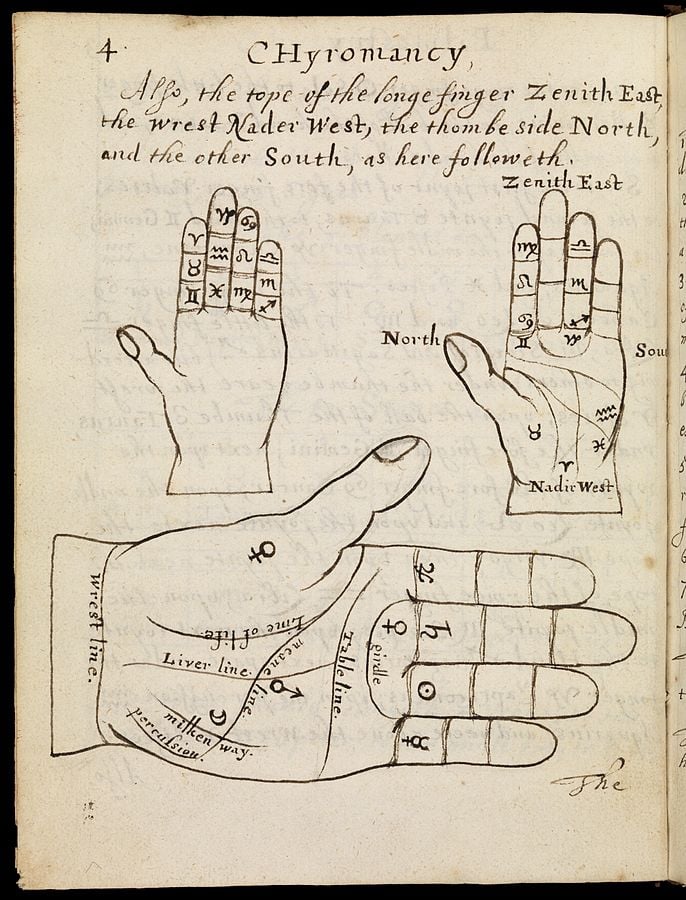 4.
CHyromancy,
Also, the tope of the longe finger Zenith East,
the wrest Nader West, the thombe side North,
and the other South, as here followeth.
Zenith East
♈ ♑ ♋ ♎
♉ ♒ ♌ ♏
♊ ♓ ♍ ♐
♍ ♎
♌ ♏
♋ ♐
♊ ♑
North
Sou
♉ ♒
♈ ♓
Nadir West
♀
♃
Wrest line.
Line of life
Liver line.
meane line.
Table line.
girdle
♀ ♄
♂
☉
☽
milken way.
percussion.
☿
The